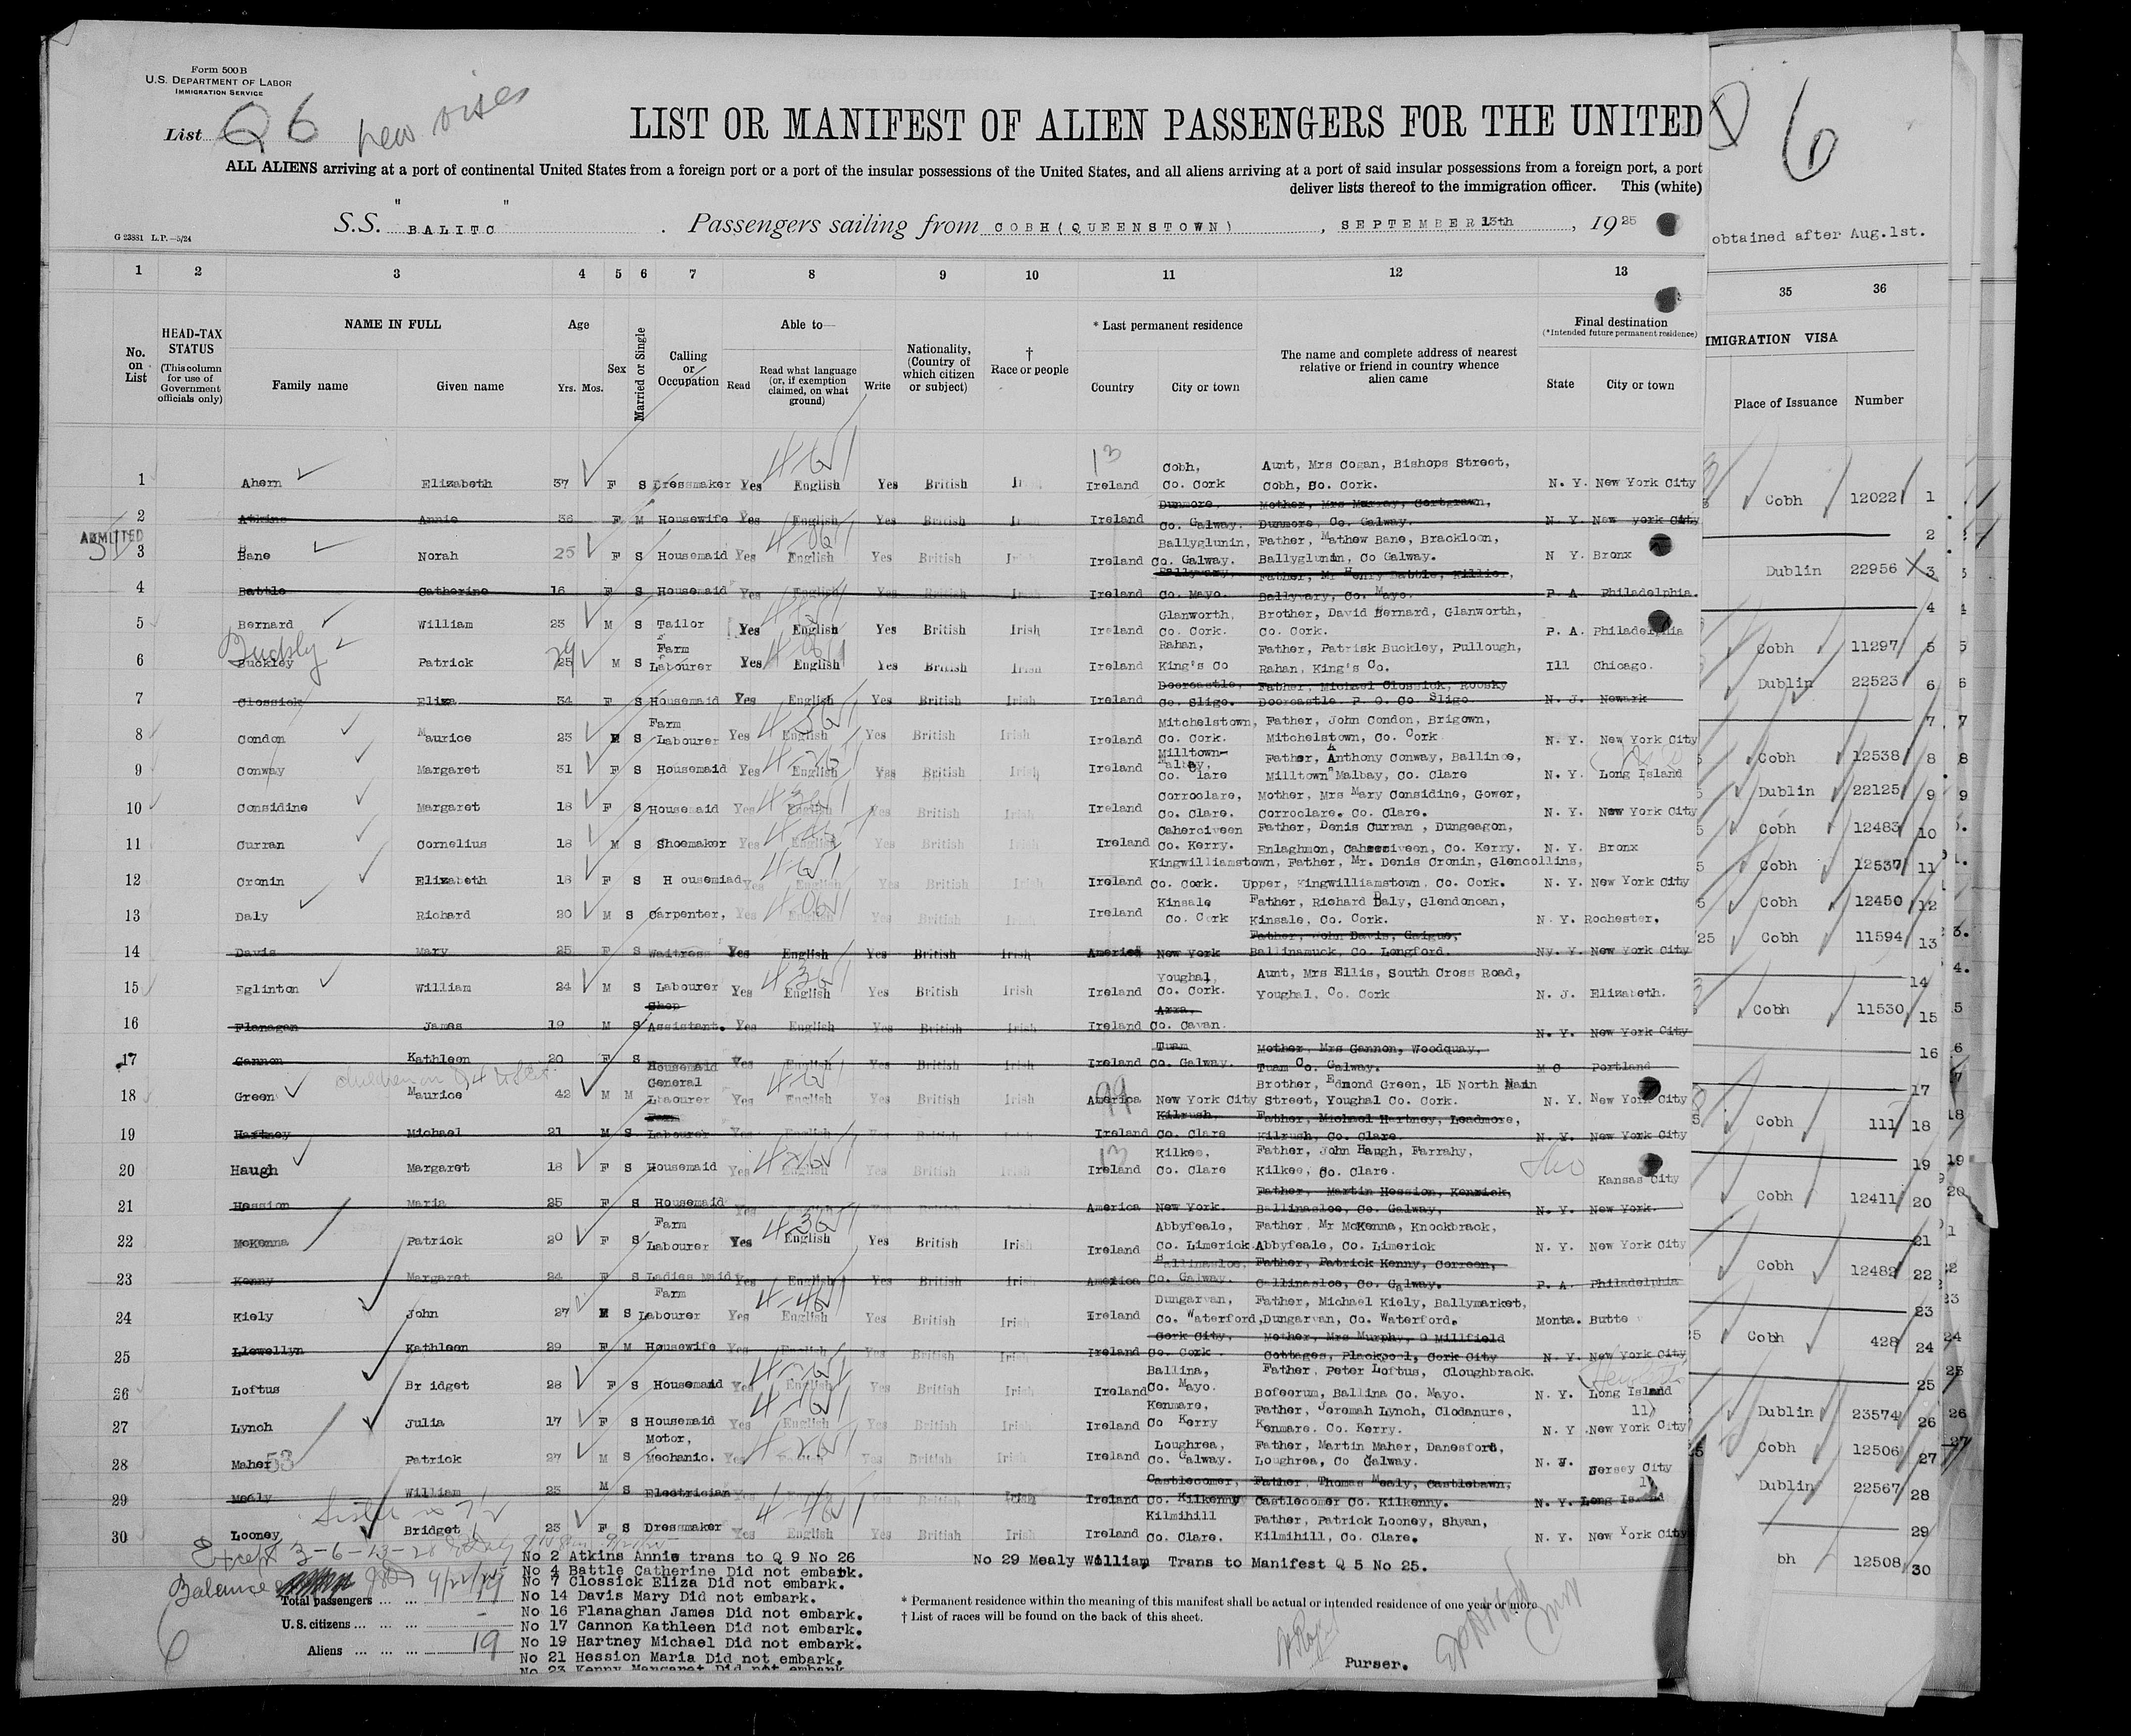 Form 500 B
U.S. DEPARTMENT OF LABOR
IMMIGRATION SERVICE
List Q 6 new vises
LIST OR MANIFEST OF ALIEN PASSENGERS FOR THE UNITED
6
ALL ALIENS arriving at a port of continental United States from a foreign port or a port of the insular possessions of the United States, and all aliens arriving at a port of said insular possessions from a foreign port, a port
deliver lists thereof to the immigration officer. This (white)
S.S. "BALITC" . Passengers sailing from COBH(QUEENSTOWN), SEPTEMBER 13th, 1925
G 23881 L.P.—5/24
obtained after Aug.1st.
1 2 3 4 5 6 7 8 9 10 11 12 13 35 36
No. on List
HEAD-TAX STATUS (This column for use of Government officials only)
NAME IN FULL
Family name Given name
Age Yrs. Mos.
Sex
Married or Single
Calling or Occupation
Able to—
Read Read what language (or, if exemption claimed, on what ground) Write
Nationality, (Country of which citizen or subject)
† Race or people
* Last permanent residence
Country City or town
The name and complete address of nearest relative or friend in country whence alien came
Final destination
(*Intended future permanent residence)
State City or town
MIGRATION VISA
Place of Issuance Number
ADMITTED
1 Ahern Elizabeth 37 F S Dressmaker Yes English Yes British Ireland Cobh, Co. Cork Aunt, Mrs Cogan, Bishops Street, Cobh, Co. Cork. N. Y. New York City Cobh 12022 1
2 Atkins Annie 36 F M Housewife Yes English Yes British Ireland Dunmore, Co. Galway. Mother, Mrs Murray, Gortgrawn, Dunmore, Co. Galway. N. Y. New york City 2
3 Bane Norah 25 F S Housemaid Yes English Yes British Ireland Ballyglunin, Co. Galway. Father, Mathew Bane, Brackloon, Ballyglunin, Co Galway. N Y. Bronx Dublin 22956 3
4 Battle Catherine 16 F S Housemaid Yes English Yes British Ireland Ballyvary, Co. Mayo. Father, Mr Henry Battle, Killier, Ballyvary, Co. Mayo. P. A. Philadelphia. 4
5 Bernard William 23 M S Tailor Yes English Yes British Irish Ireland Glanworth, Co. Cork. Brother, David Bernard, Glanworth, Co. Cork. P. A. Philadelphia Cobh 11297 5
Buckly
6 Buckley Patrick 25 29 M S Farm Labourer Yes English Yes British Irish Ireland Rahan, King's Co Father, Patrisk Buckley, Pullough, Rahan, King's Co. Ill Chicago. Dublin 22523 6
7 Clossick Eliza 34 F S Housemaid Yes English Yes British Irish Ireland Doorcastle, Co. Sligo. Father, Michael Clossick, Roosky Doorcastle P. O. Co Sligo N. J. Newark 7
8 Condon Maurice 23 M S Farm Labourer Yes English Yes British Irish Ireland Mitchelstown, Co. Cork. Father, John Condon, Brigown, Mitchelstown, Co. Cork N. Y. New York City Cobh 12538 8
9 Conway Margaret 31 F S Housemaid Yes English Yes British Irish Ireland Milltown-Malbay, Co. Clare Father, Anthony Conway, Ballinoe, Milltown Malbay, Co. Clare N. Y. Long Island Dublin 22125 9
10 Considine Margaret 18 F S Housemaid Yes English Yes British Irish Ireland Corroclare, Co. Clare. Mother, Mrs Mary Considine, Gower, Corroclare. Co. Clare. N. Y. New York City Cobh 12483 10
11 Curran Cornelius 18 M S Shoemaker Yes English Yes British Irish Ireland Caherciveen Co. Kerry. Father, Denis Curran, Dungeagon, Enlaghmon, Caherciveen, Co. Kerry. N. Y. Bronx Cobh 12537 11
12 Cronin Elizabeth 18 F S Housemiad Yes English Yes British Irish Ireland Kingwilliamstown, Co. Cork. Father, Mr. Denis Cronin, Glencollins, Upper, Kingwilliamstown, Co. Cork. N. Y. New York City Cobh 12450 12
13 Daly Richard 20 M S Carpenter, Yes English Yes British Irish Ireland Kinsale Co. Cork Father, Richard Daly, Glendonoan, Kinsale, Co. Cork. N. Y. Rochester. Cobh 11594 13
14 Davis Mary 25 F S Waitress Yes English Yes British Irish America New York Father, John Davis, Gaigue, Ballinamuck, Co. Longford. N. Y. New York City 14
15 Eglinton William 24 M S Labourer Yes English Yes British Irish Ireland Youghal, Co. Cork. Aunt, Mrs Ellis, South Cross Road, Youghal, Co. Cork N. J. Elizabeth. Cobh 11530 15
16 Flanagan James 19 M S Shop Assistant. Yes English Yes British Irish Ireland Arra, Co. Cavan. N. Y. New York City 16
17 Cannon Kathleen 20 F S Housemaid Yes English Yes British Irish Ireland Tuam Co. Galway. Mother, Mrs Cannon, Woodquay, Tuam Co. Galway. Portland 17
18 Green Maurice 42 M M General Labourer Yes English Yes British Irish America New York City Brother, Edmond Green, 15 North Main Street, Youghal Co. Cork. N. Y. New York City Cobh 111 18
19 Hartney Michael 21 M S Farm Labourer Yes English Yes British Irish Ireland Kilrush, Co. Clare Father, Michael Hartney, Leadmore, Kilrush, Co. Clare. N. Y. New York City 19
20 Haugh Margaret 18 F S Housemaid Yes English Yes British Irish Ireland Kilkee, Co. Clare Father, John Haugh, Farrahy, Kilkee, Co. Clare. Kansas City Cobh 12411 20
21 Hession Maria 25 F S Housemaid Yes English Yes British Irish America New York. Father, Martin Hession, Kenrick, Ballinasloe, Co. Galway, N. Y. New York. 21
22 McKenna Patrick 20 F S Farm Labourer Yes English Yes British Irish Ireland Abbyfeale, Co. Limerick. Father, Mr McKenna, Knockbrack, Abbyfeale, Co. Limerick N. Y. New York City Cobh 12482 22
23 Kenny Margaret 24 F S Ladies maid Yes English Yes British Irish America Ballinasloe, Co. Galway. Father, Patrick Kenny, Correen, Ballinasloe, Co. Galway. P. A. Philadelphia 23
24 Kiely John 27 M S Farm Labourer Yes English Yes British Irish Ireland Dungarvan, Co. Waterford, Father, Michael Kiely, Ballymarket, Dungarvan, Co. Waterford. Monta. Butte Cobh 428 24
25 Llewellyn Kathleen 29 F M Housewife Yes English Yes British Irish Ireland Cork City, Co. Cork. Mother, Mrs Murphy, 9 Millfield Cottages, Blackpool, Cork City N. Y. New York City 25
26 Loftus Bridget 28 F S Housemaid Yes English Yes British Irish Ireland Ballina, Co. Mayo. Father, Peter Loftus, Cloughbrack. Bofeorum, Ballina Co. Mayo. N. Y. Long Island Dublin 23574 26
27 Lynch Julia 17 F S Housemaid Yes English Yes British Irish Ireland Kenmare, Co Kerry Father, Jeremah Lynch, Clodanure, Kenmare. Co. Kerry. N. Y. New York City Cobh 12506 27
28 Maher 53 Patrick 27 M S Motor, Mechanic. Yes English Yes British Irish Ireland Loughrea, Co. Galway. Father, Martin Maher, Danesfort, Loughrea, Co Galway. N. J. Jersey City Dublin 22567 28
29 Mealy William 23 M S Electrician Yes English Yes British Irish Ireland Castlecomer, Co. Kilkenny Father, Thomas Mealy, Castletown, Castlecomer Co. Kilkenny. N. Y. Long Island 29
30 Looney Bridget 23 F S Dressmaker Yes English Yes British Irish Ireland Kilmihill Co. Clare. Father, Patrick Looney, Shyan, Kilmihill, Co. Clare. N. Y. New York City bh 12508 30
Except 3-6-13-28
Balance
No 2 Atkins Annie trans to Q 9 No 26
No 29 Mealy William Trans to Manifest Q 5 No 25.
No 4 Battle Catherine Did not embark.
No 7 Clossick Eliza Did not embark.
No 14 Davis Mary Did not embark.
No 16 Flanaghan James Did not embark.
No 17 Cannon Kathleen Did not embark.
No 19 Hartney Michael Did not embark.
No 21 Hession Maria Did not embark.
No 23 Kenny Margaret Did not embark
Total passengers ... ...
U.S. citizens ... ... ... -
Aliens ... ... ... 19
* Permanent residence within the meaning of this manifest shall be actual or intended residence of one year or more
† List of races will be found on the back of this sheet.
Purser.